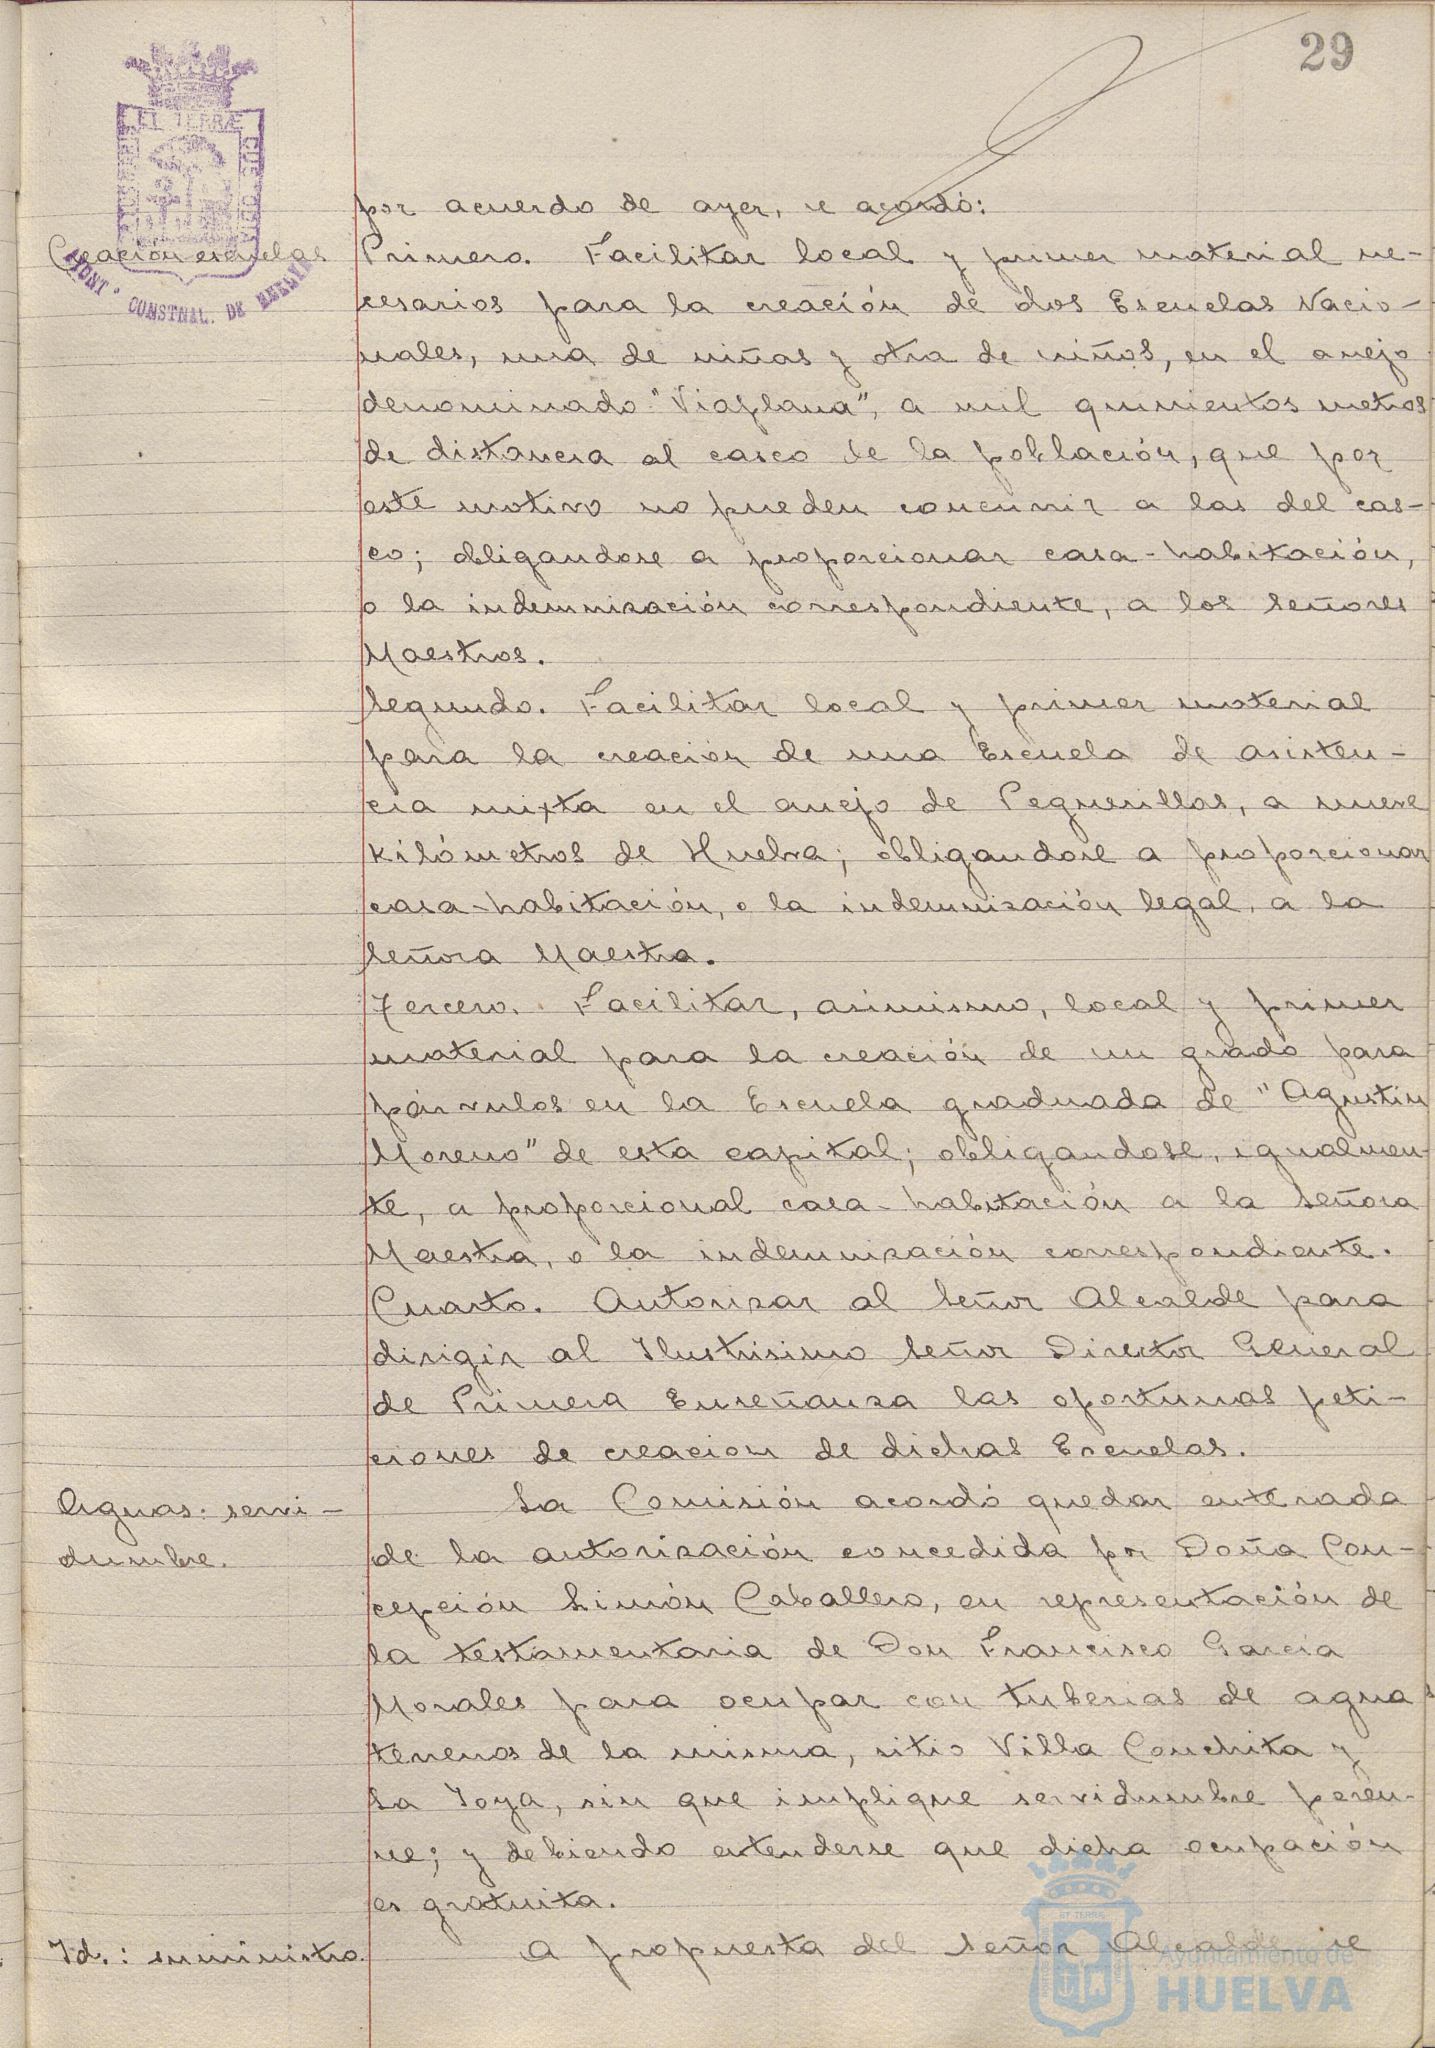 29
por acuerdo de ayer, se acordó:
Creación escuelas
Primero. Facilitar local y primer material ne-
cesarios para la creación de dos Escuelas Nacio-
nales, una de niñas y otra de niños, en el anejo
denominado "Viaplana", a mil quinientos metros
de distancia al casco de la población, que por
este motivo no pueden concurrir a las del cas-
co; obligandose a proporcionar casa-habitación,
o la indemnización correspondiente, a los Señores
Maestros.
Segundo. Facilitar local y primer material
para la creación de una Escuela de asisten-
cia mixta en el anejo de Peguerillas, a nueve
kilómetros de Huelva; obligandose a proporcionar
casa-habitación, o la indemnización legal, a la
Señora Maestra.
Tercero. Facilitar, asimismo, local y primer
material para la creación de un grado para
párvulos en la Escuela graduada de "Agustin
Moreno" de esta capital; obligandose, igualmen-
te, a proporcional casa-habitación a la Señora
Maestra, o la indemnización correspondiente.
Cuarto. Autorizar al Señor Alcalde para
dirigir al Ilustrisimo Señor Director General
de Primera Enseñanza las oportunas peti-
ciones de creacion de dichas Escuelas.
Aguas: servi-
dumbre.
La Comisión acordó quedar enterada
de la autorización concedida por Doña Con-
cepción Limón Caballero, en representación de
la testamentaria de Don Francisco García
Morales para ocupar con tuberias de agua
terrenos de la misma, sitio Villa Conchita y
La Joya, sin que implique servidumbre peren-
ne; y debiendo entenderse que dicha ocupación
es gratuita.
Id.: suministro.
A propuesta del Señor Alcalde se
ET TERRÆ
CONSTNAL. DE HUELVA
Ayuntamiento de
HUELVA